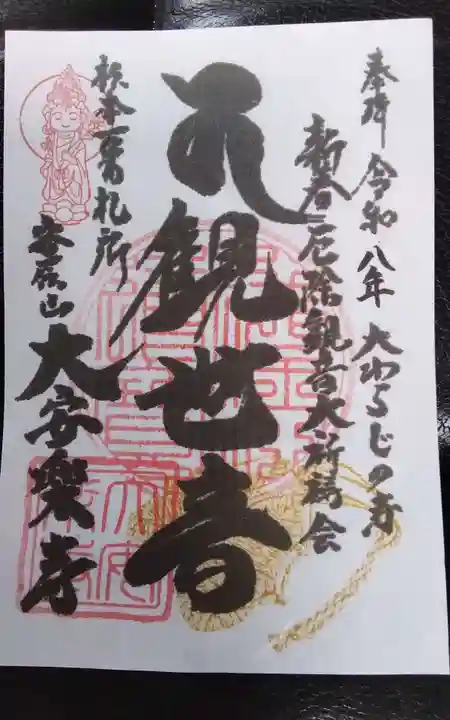 奉拝 令和八年 大わらじの寺
新春厄除観音大祈祷会
観世音
杉本一番札所
安居山 大安楽寺